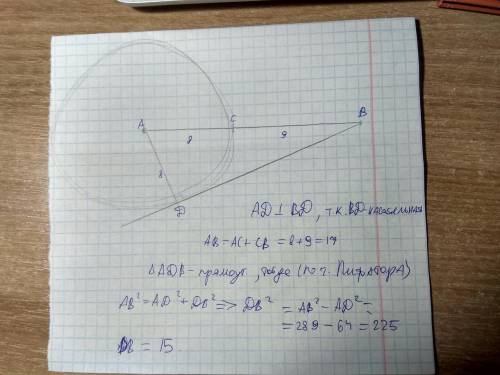 A
C
B
8
9
8
D
AD ⊥ BD, т.к. BD касательная
AB = AC + CB = 8 + 9 = 17
△ADB - прямоуг., тогда (по т. Пифагора)
AB² = AD² + DB² => DB² = AB² - AD² =
= 289 - 64 = 225
DB = 15